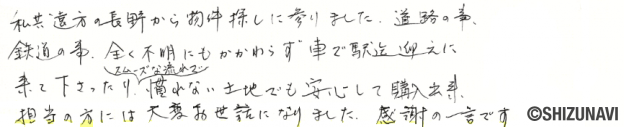 私共遠方の長野から物件探しに参りました。道路の事、
鉄道の事、全く不明にもかかわらず車で駅迄迎えに
スムーズな流れで
来て下さったり、慣れない土地でも安心して購入出来、
担当の方には大変お世話になりました。感謝の一言です
©SHIZUNAVI